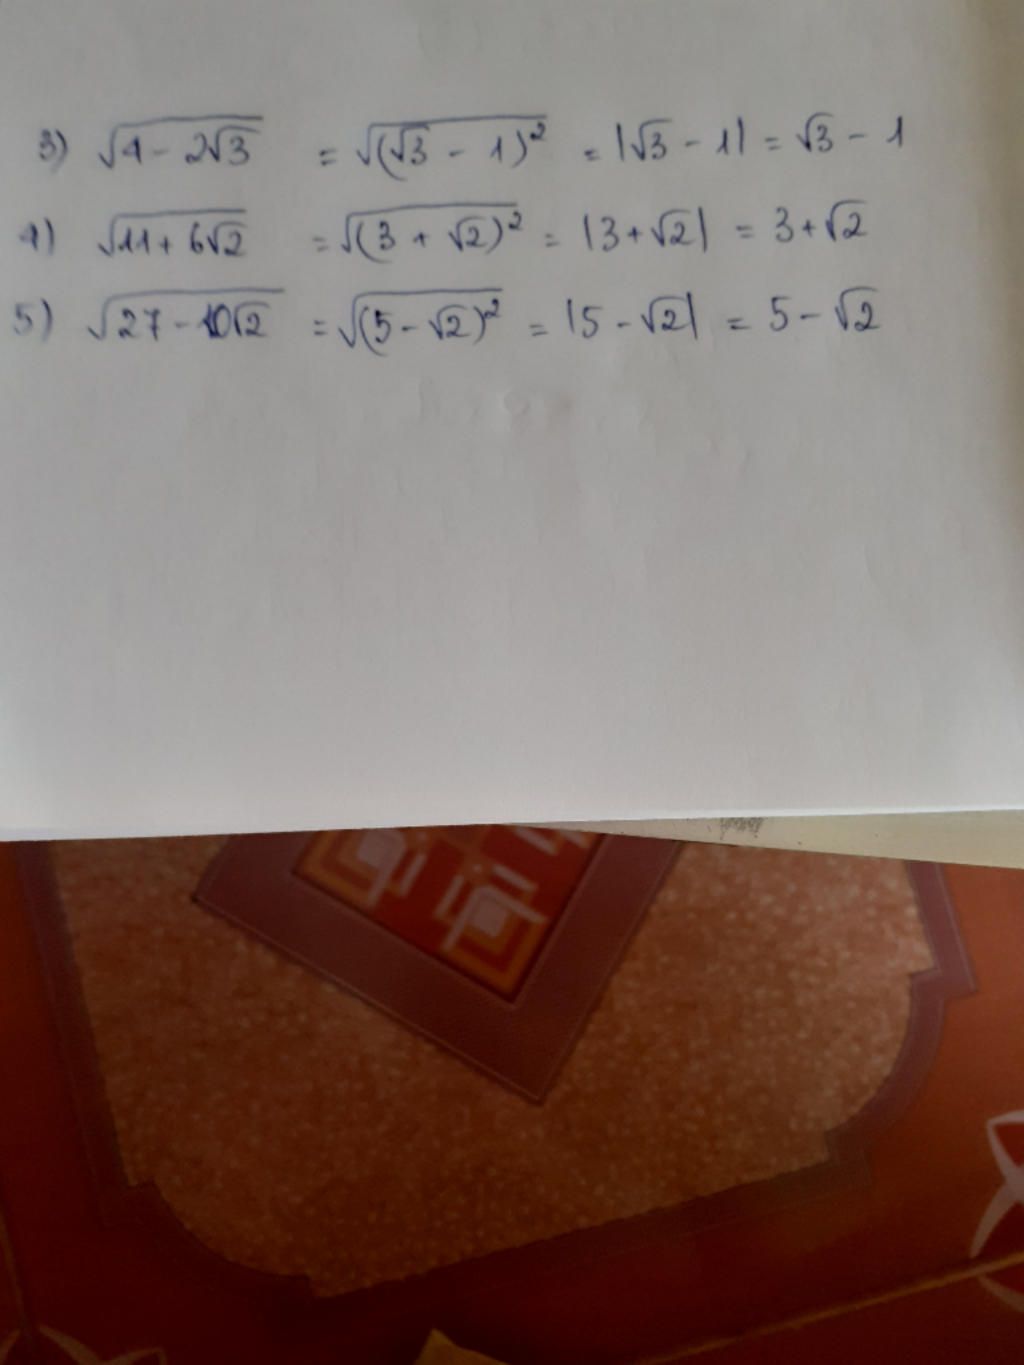 3) √(4 - 2√3) = √((√3 - 1)²) = |√3 - 1| = √3 - 1
4) √(11 + 6√2) = √((3 + √2)²) = |3 + √2| = 3 + √2
5) √(27 - 10√2) = √((5 - √2)²) = |5 - √2| = 5 - √2